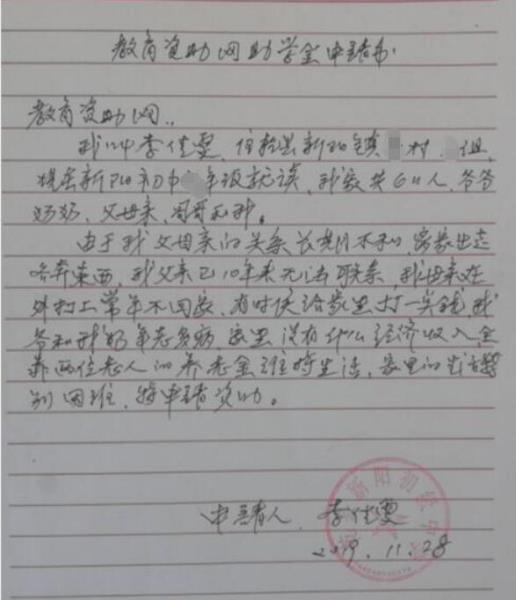 教育资助网助学金申请书
教育资助网：
我叫李佳雯，住乾县新阳镇 村 组，
现在新阳初中 年级就读，我家共6口人，爷爷
奶奶、父母亲、哥哥和我。
由于我父母亲的关系长期不和，离家出走
各奔东西，我父亲已10年来无法联系，我母亲在
外打工常年不回家，有时候给家里打一点钱，我
爷和我奶年老多病，家里没有什么经济收入，全
靠两位老人的养老金维持生活，家里的生活特
别困难，特申请资助。
申请人：李佳雯
2019.11.28
新阳初级中学